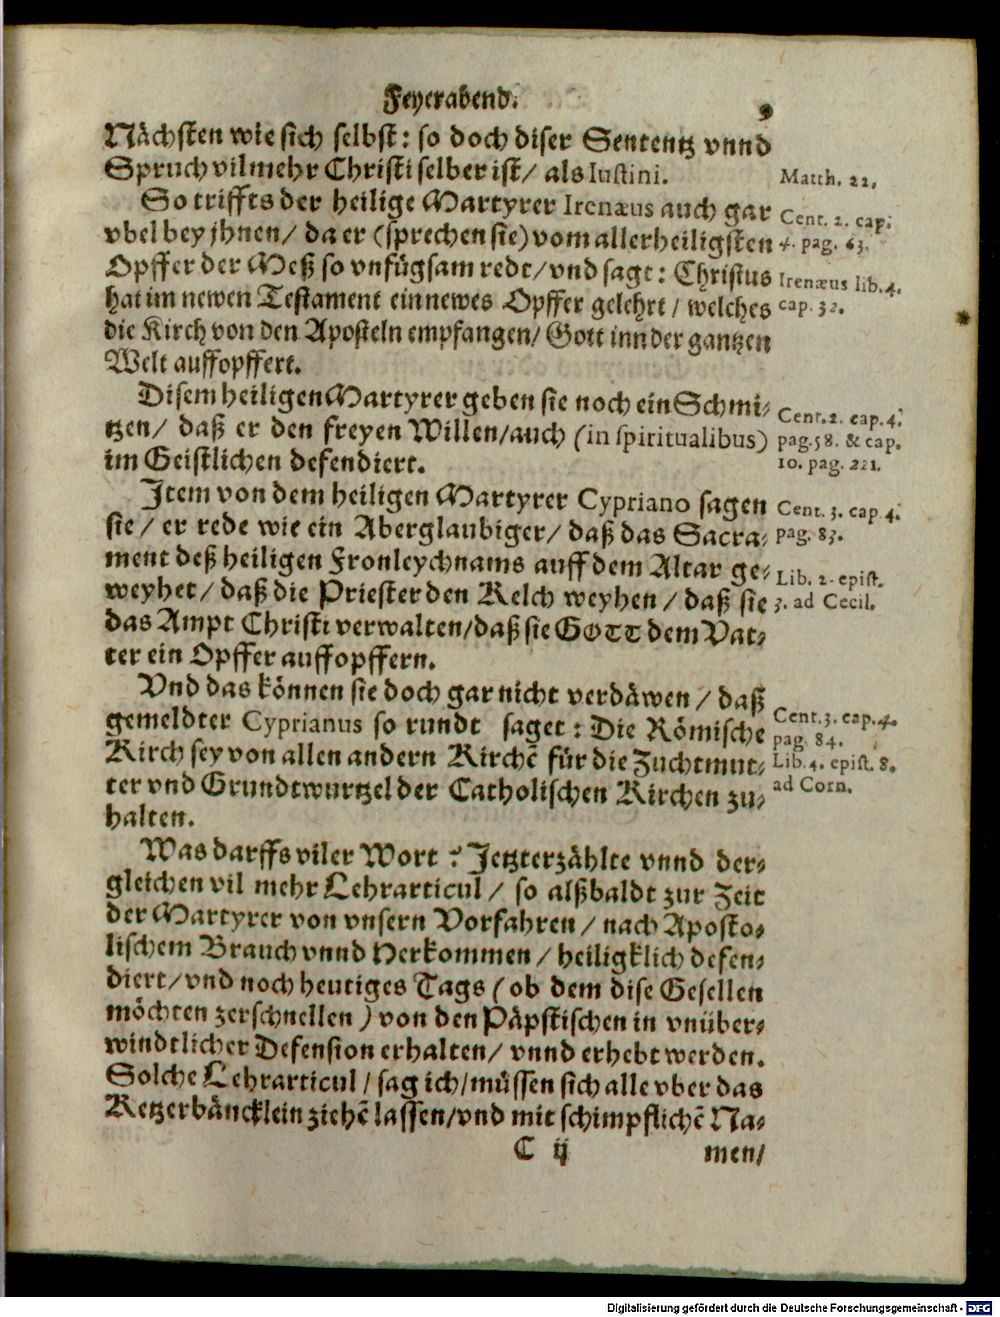 Feyerabend.
9
Nächsten wie sich selbst: so doch diser Sententz vnnd
Spruch vilmehr Christi selber ist/ als Iustini.
Matth. 22.
So triffts der heilige Martyrer Irenæus auch gar
vbel bey jhnen/ da er (sprechen sie) vom allerheiligsten
Opffer der Meß so vnfůgsam redt/ vnd sagt: Christus
hat im newen Testament ein newes Opffer gelehrt/ welches
die Kirch von den Aposteln empfangen/ Gott inn der gantzen
Welt auffopffert.
Cent. 2. cap.
4. pag. 63.
Irenæus lib. 4.
cap. 32.
Disem heiligen Martyrer geben sie noch ein Schmi-
tzen/ daß er den freyen Willen/ auch (in spiritualibus)
im Geistlichen defendiert.
Cent. 2. cap. 4.
pag. 58. & cap.
10. pag. 221.
Item von dem heiligen Martyrer Cypriano sagen
sie/ er rede wie ein Aberglaubiger/ daß das Sacra-
ment deß heiligen Fronleychnams auff dem Altar ge-
weyhet/ daß die Priester den Kelch weyhen/ daß sie
das Ampt Christi verwalten/ daß sie GOTT dem Vat-
ter ein Opffer auffopffern.
Cent. 3. cap 4.
pag. 83.
Lib. 2. epist.
3. ad Cecil.
Vnd das können sie doch gar nicht verdäwen/ daß
gemeldter Cyprianus so rundt saget: Die Römische
Kirch sey von allen andern Kirchẽ für die Zuchtmut-
ter vnd Grundtwurtzel der Catholischen Kirchen zu-
halten.
Cent. 3. cap. 4.
pag. 84.
Lib. 4. epist. 8.
ad Corn.
Was darffs viler Wort? Jetzterzählte vnnd der-
gleichen vil mehr Lehrarticul/ so alßbaldt zur Zeit
der Martyrer von vnsern Vorfahren/ nach Aposto-
lischem Brauch vnnd Herkommen/ heiligklich defen-
diert/ vnd noch heutiges Tags (ob dem dise Gesellen
möchten zerschnellen) von den Päpstischen in vnüber-
windtlicher Defension erhalten/ vnnd erhebt werden.
Solche Lehrarticul/ sag ich/ müssen sich alle vber das
Ketzerbäncklein ziehẽ lassen/ vnd mit schimpflichẽ Na-
C ij
men/
Digitalisierung gefördert durch die Deutsche Forschungsgemeinschaft - DFG